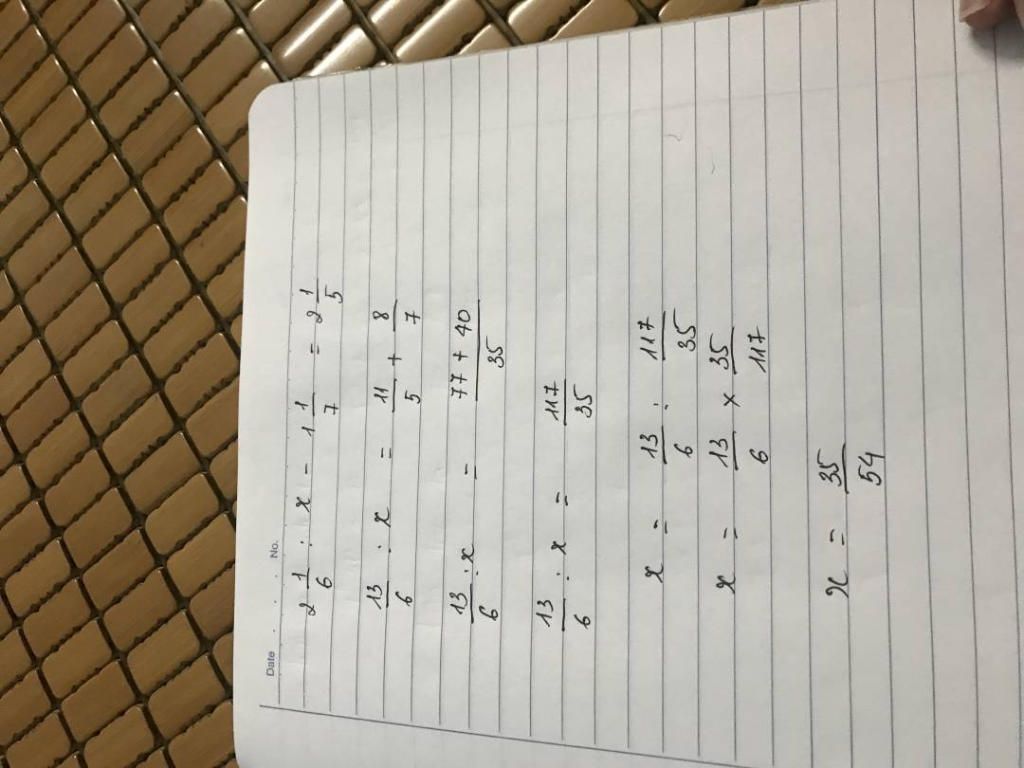 Date . . . No.
2 1/6 : x - 1 1/7 = 2 1/5
13/6 : x = 11/5 + 8/7
13/6 : x = (77 + 40)/35
13/6 : x = 117/35
x = 13/6 : 117/35
x = 13/6 × 35/117
x = 35/54